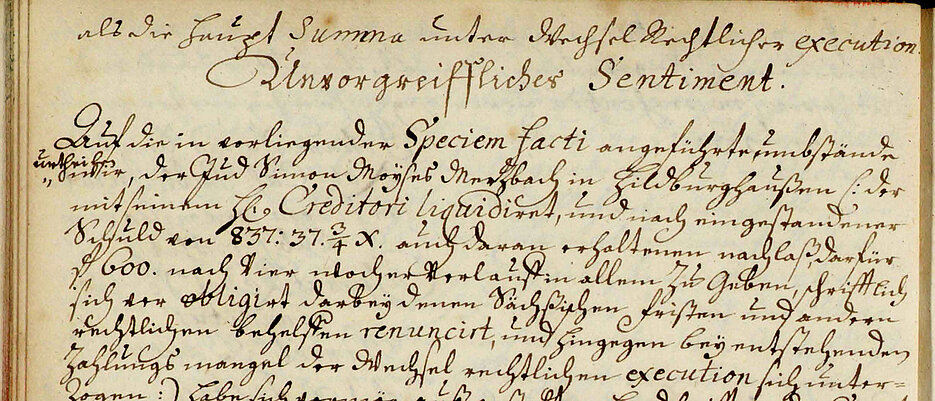 als die Haupt Summa unter Wechsel Rechtlicher execution.
Unvorgreiffliches Sentiment.
Auf die in vorliegender Speciem facti angeführte umbstände
urtheilen
wir, der Jud Simon Moyses Mertzbach in Hildburghaußen /: der
mit seinem H. Creditori liquidiret, und nach eingestandener
Schuld von 837: 37. 3/4 X. auch daran erhaltenen nachlaß, darfür
f 600. nach vier wochen verlauff in allem zu geben, schrifftlich
sich ver obligirt darbey denen Sächßischen fristen und andern
rechtlichen behelffen renuncirt, und hingegen bey entstehenden
Zahlungs mangel der Wechsel rechtlichen execution sich unter-
zogen :/ habe sich